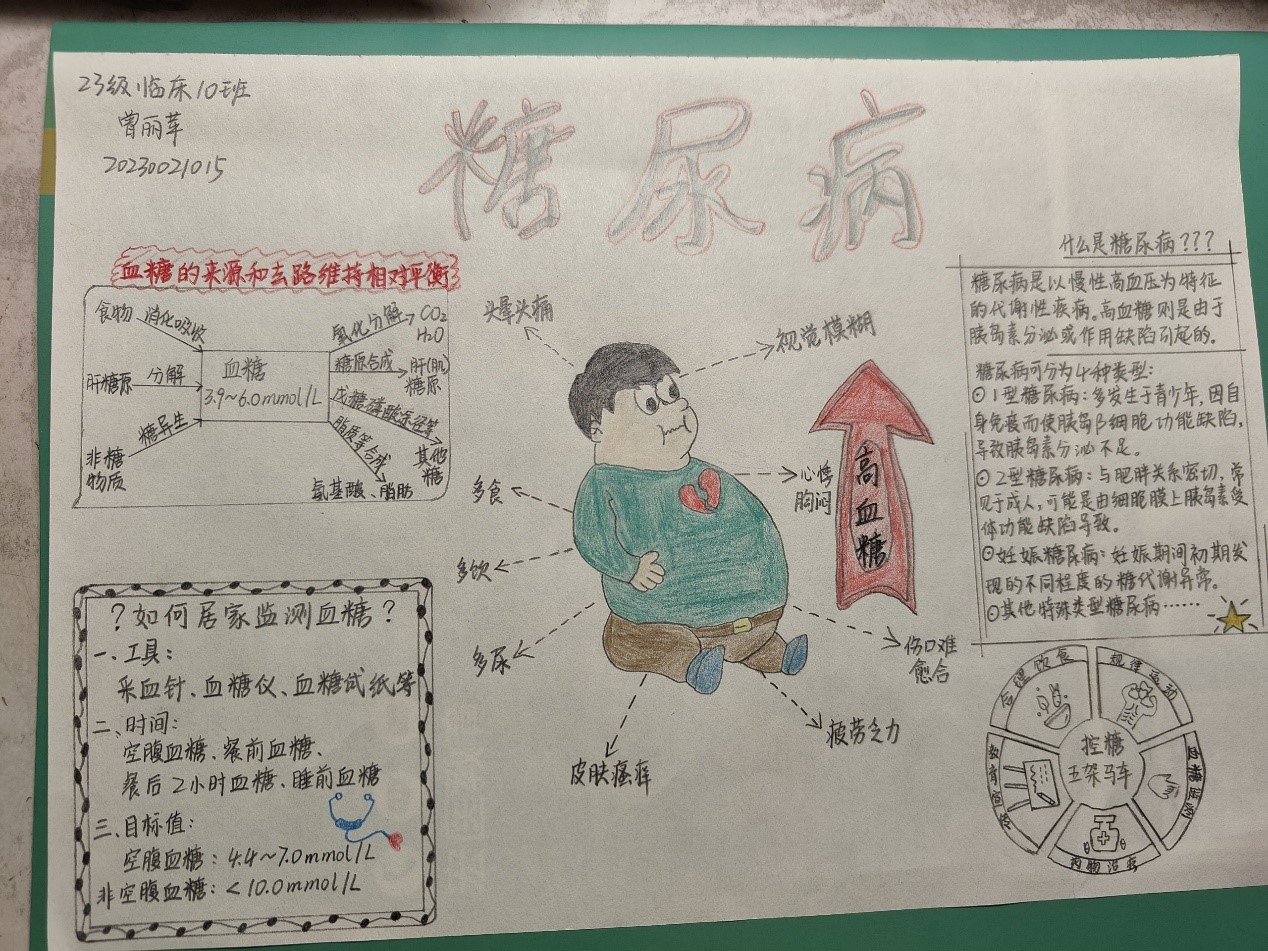 23级临床10班
曾丽苹
20230021015
糖尿病
血糖的来源和去路维持相对平衡
食物 消化吸收
肝糖原 分解
非糖物质 糖异生
血糖
3.9~6.0mmol/L
氧化分解 CO₂
H₂O
糖原合成 肝(肌)
糖原
戊糖磷酸途径等 其他
糖
脂质等合成
氨基酸、脂肪
?如何居家监测血糖?
一、工具:
采血针、血糖仪、血糖试纸等
二、时间:
空腹血糖、餐前血糖、
餐后2小时血糖、睡前血糖
三、目标值:
空腹血糖:4.4~7.0mmol/L
非空腹血糖:<10.0mmol/L
头晕头痛
视觉模糊
心悸
胸闷
多食
多饮
多尿
皮肤瘙痒
疲劳乏力
伤口难
愈合
高血糖
什么是糖尿病???
糖尿病是以慢性高血压为特征
的代谢性疾病。高血糖则是由于
胰岛素分泌或作用缺陷引起的。
糖尿病可分为4种类型:
⊙1型糖尿病:多发生于青少年,因自
身免疫而使胰岛β细胞功能缺陷,
导致胰岛素分泌不足。
⊙2型糖尿病:与肥胖关系密切,常
见于成人,可能是由细胞膜上胰岛素受
体功能缺陷导致。
⊙妊娠糖尿病:妊娠期间初期发
现的不同程度的糖代谢异常。
⊙其他特殊类型糖尿病……
控糖
五架马车
合理饮食
规律运动
血糖监测
药物治疗
教育